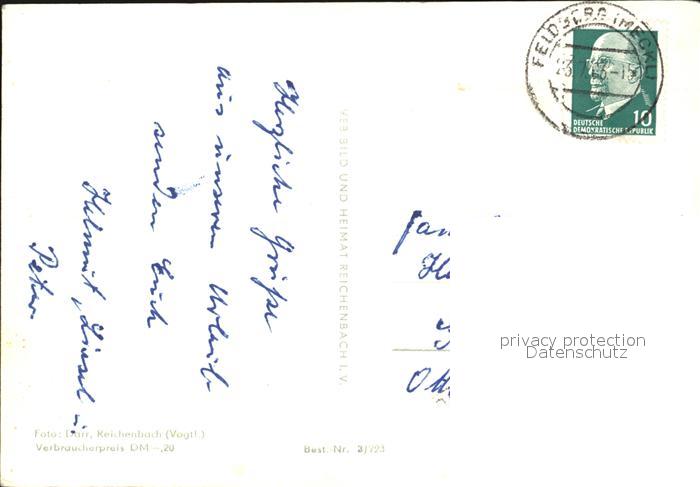 Herzliche Grüße
aus unserem Urlaub
senden Euch
Helmut, Liesel u.
Peter
VEB BILD UND HEIMAT REICHENBACH I. V.
FELDBERG (MECKL)
10
DEUTSCHE
DEMOKRATISCHE REPUBLIK
Fam
privacy protection
Datenschutz
Foto: Darr, Reichenbach (Vogtl.)
Verbraucherpreis DM -,20
Best.-Nr. 3/723